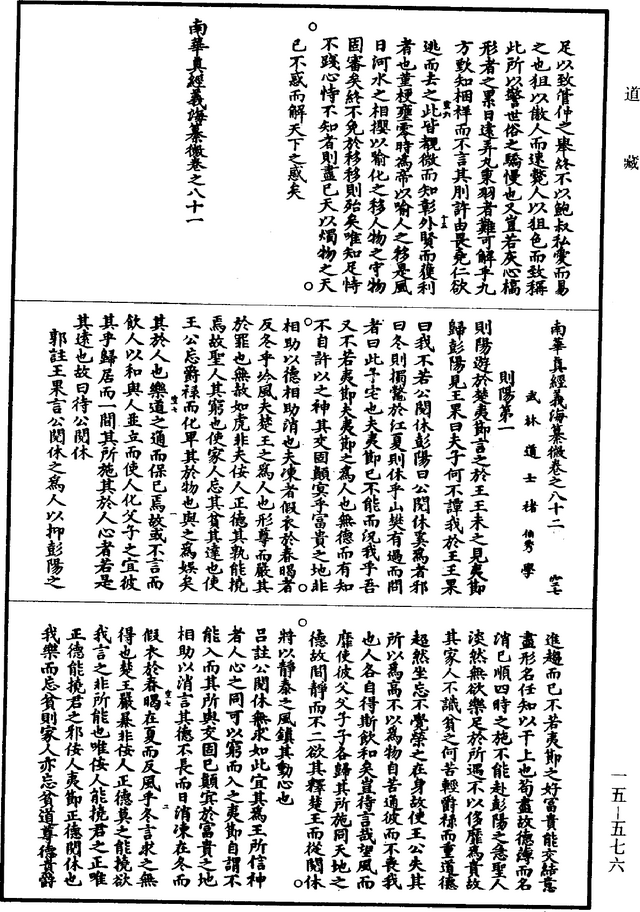 道藏
足以致管仲之舉終不以鮑叔私愛而易
之也狙以傲人而速斃人以狙色而致稱
此所以警世俗之驕慢也又豈若灰心槁
形者之累日遠弄丸秉羽者難可解乎九
方歅知梱祥而不言其刖許由畏堯仁欲
逃而去之此皆覩微而知彰外賢而獲利
者也堇梗壅零時為帝以喻人之移是風
日河水之相攖以喻化之移人物之守物
固審矣終不免於移移則殆矣唯知足恃
不踐心恃不知者則盡已天以燭物之天
已不惑而解天下之惑矣
南華真經義海纂微卷之八十一
南華真經義海纂微卷之八十二
武林道士褚伯秀學
則陽第一
則陽遊於楚夷節言之於王王未之見夷節
歸彭陽見王果曰夫子何不譚我於王王果
曰我不若公閱休彭陽曰公閱休奚為者邪
曰冬則擉鱉於江夏則休乎山樊有過而問
者曰此予宅也夫夷節已不能而況我乎吾
又不若夷節夫夷節之為人也無德而有知
不自許以之神其交固顛冥乎富貴之地非
相助以德相助消也夫凍者假衣於春暍者
反冬乎冷風夫楚王之為人也形尊而嚴其
於罪也無赦如虎非夫佞人正德其孰能撓
焉故聖人其窮也使家人忘其貧其達也使
王公忘爵祿而化卑其於物也與之為娛矣
其於人也樂道之通而保已焉故或不言而
飲人以和與人並立而使人化父子之宜彼
其乎歸居而一間其所施其於人心者若是
其遠也故曰待公閱休
郭註王果言公閱休之為人以抑彭陽之
進趨而已不若夷節之好富貴能交結意
盡形名任知以干上也苟盡故德薄而名
消已順四時之施不能赴彭陽之急聖人
淡然無欲樂足於所遇不以侈靡為貴故
其家人不識貧之何苦輕爵祿而重道德
超然坐忘不覺榮之在身故使王公失其
所以為高不以為物自苦通彼而不喪我
也人各自得斯飲和矣豈待言哉望風而
靡使彼父父子子各歸其所施同天地之
德故間靜而不二欲其釋楚王而從閱休
將以靜泰之風鎮其動心也
呂註公閱休無求如此宜其為王所信神
者人心之同可以窮而入之夷節自謂不
能入而其所與交固已顛冥於富貴之地
相助以消言其德不長而日消凍在冬而
假衣於春暍在夏而反風乎冬言求之無
得也楚王嚴暴非佞人正德莫之能撓欲
我言之非所能也唯佞人能撓君之正唯
正德能撓君之邪佞人夷節正德閱休也
我樂而忘貧則家人亦忘貧道尊德貴爵
一五—五七六